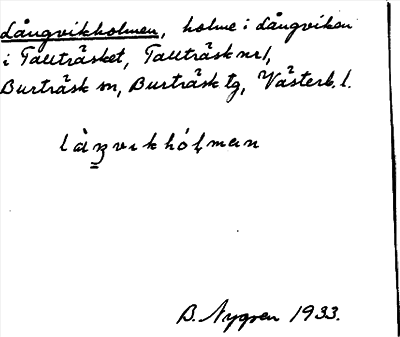 Långvikholmen, holme i Långviken
i Tallträsket, Tallträsk nr 1,
Burträsk sn, Burträsk tg, Västerb. l.
låŋvɩkhólman
B. Nygren 1933.